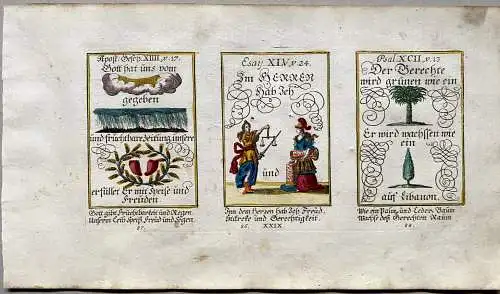 Apost. Gesch. XIIII, v. 17.
Gott hat uns vom
gegeben
und fruchtbare Zeitung, unsere
erfüllet Er mit Speise und
Freuden
Gott gibt Fruchtbarkeit und Regen
Unserm Leib Speiß Freud und Segen
87.
Esai. XLV, v. 24.
Im HERREN
hab Ich
und
Inn dem Herren hab Ich Freud,
Stärcke und Gerechtigkeit.
XXIX
Psal. XCII, v. 13
Der Gerechte
wird grünen wie ein
Er wird wachssen wie
ein
auf Libanon.
Wie ein Palm, und Ceder Baum
Wachßt deß Gerechten Raum